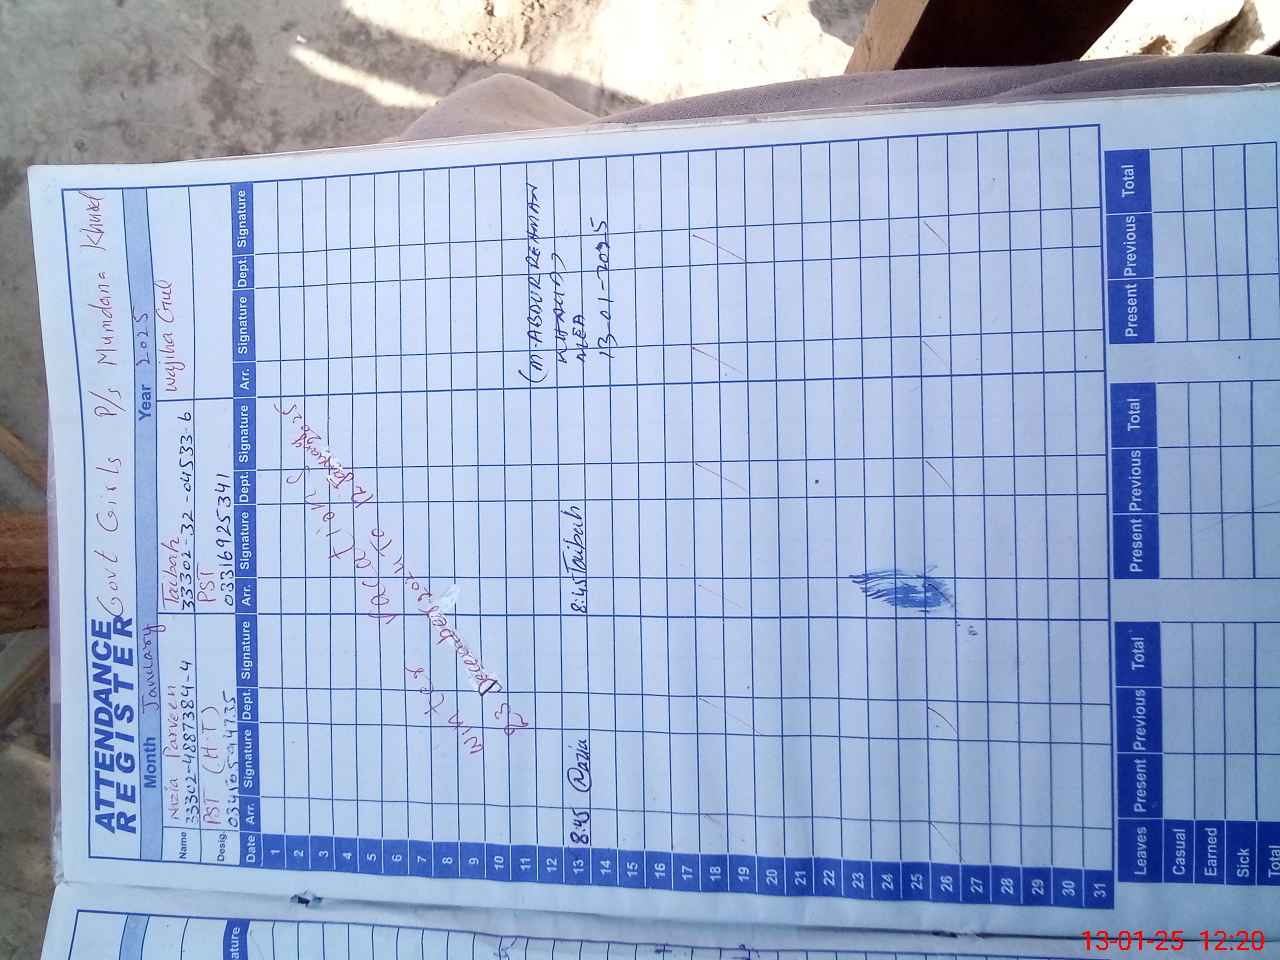 ATTENDANCE REGISTER
Govt Girls P/s Mumdana Khurd
Month January Year 2025
Name Nazia Parveen Taibah Wajiha Gul
33302-4887384-4 33302-32-04533-6
Desig. PST (H.T) PST
03316925341
Date Arr. Signature Dept. Signature Arr. Signature Dept. Signature Arr. Signature Dept. Signature
1
2
3
4
5
6
7
8
9
10
11
12
13 8:45 Nazia 8:45 Taibah
14
15
16
17
18
19
20
21
22
23
24
25
26
27
28
29
30
31
winter Vacations
23 December 2024 to 12 January 2025
(M-ABDUR REHMAN
KHALID)
MEA
13-01-2025
Leaves Present Previous Total Present Previous Total Present Previous Total
Casual
Earned
Sick
Total
ature
13-01-25 12:20